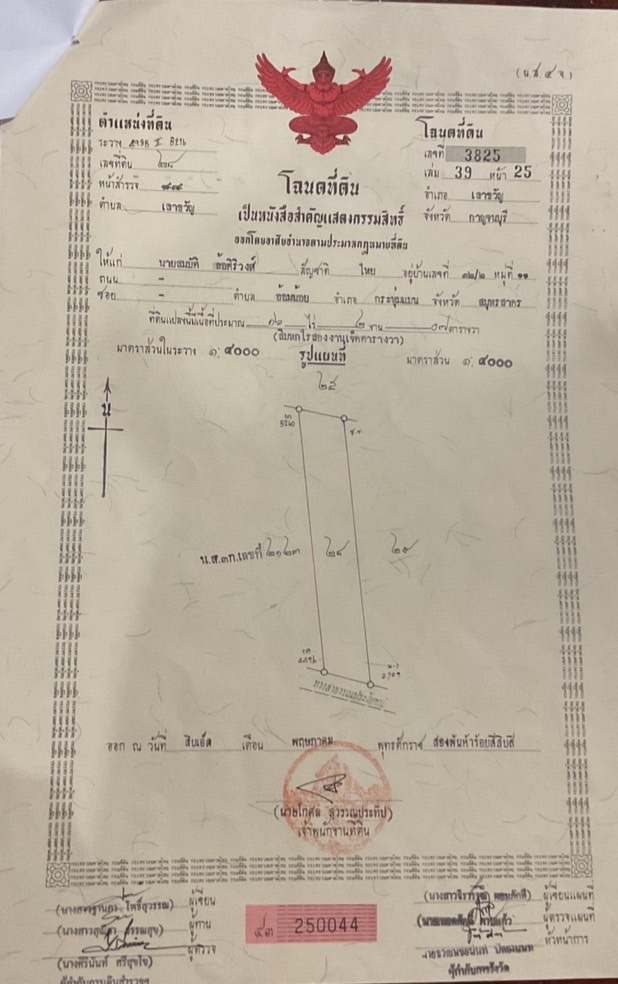 (น.ส.๔ จ)
ตำแหน่งที่ดิน
ระวาง
เลขที่ดิน ๒๘
หน้าสำรวจ
ตำบล เลาขวัญ
โฉนดที่ดิน
เลขที่ 3825
เล่ม 39 หน้า 25
อำเภอ เลาขวัญ
จังหวัด กาญจนบุรี
โฉนดที่ดิน
เป็นหนังสือสำคัญแสดงกรรมสิทธิ์
ออกโดยอาศัยอำนาจตามประมวลกฎหมายที่ดิน
ให้แก่ นายสมบัติ สัญชาติ ไทย อยู่บ้านเลขที่ ๓๒/๒ หมู่ที่ ๑๑
ถนน -
ซอย - ตำบล อ้อมน้อย อำเภอ กระทุ่มแบน จังหวัด สมุทรสาคร
ที่ดินแปลงนี้มีเนื้อที่ประมาณ ๑๖ ไร่ ๒ งาน ๐๗ ตารางวา
(สิบหกไร่สองงานเจ็ดตารางวา)
มาตราส่วนในระวาง ๑:๔๐๐๐ รูปแผนที่ มาตราส่วน ๑:๔๐๐๐
๒๕
น
น.ส.๓ก.เลขที่ ๒๑๒๓ ๒๘ ๒๙
ทางสาธารณประโยชน์
ออก ณ วันที่ สิบเอ็ด เดือน พฤษภาคม พุทธศักราช สองพันห้าร้อยสี่สิบสี่
(นายโกศล สุวรรณประทีป)
เจ้าพนักงานที่ดิน
โพธิ์สุวรรณ) ผู้เขียน
(นางสาวสุณีตา) ผู้ทาน
ผู้ตรวจ
(นางศิรินันท์ ศรีสุขใจ)
๔๓ 250044
ผู้เขียนแผนที่
ผู้ตรวจแผนที่
หัวหน้าการ
ผู้กำกับการรังวัด